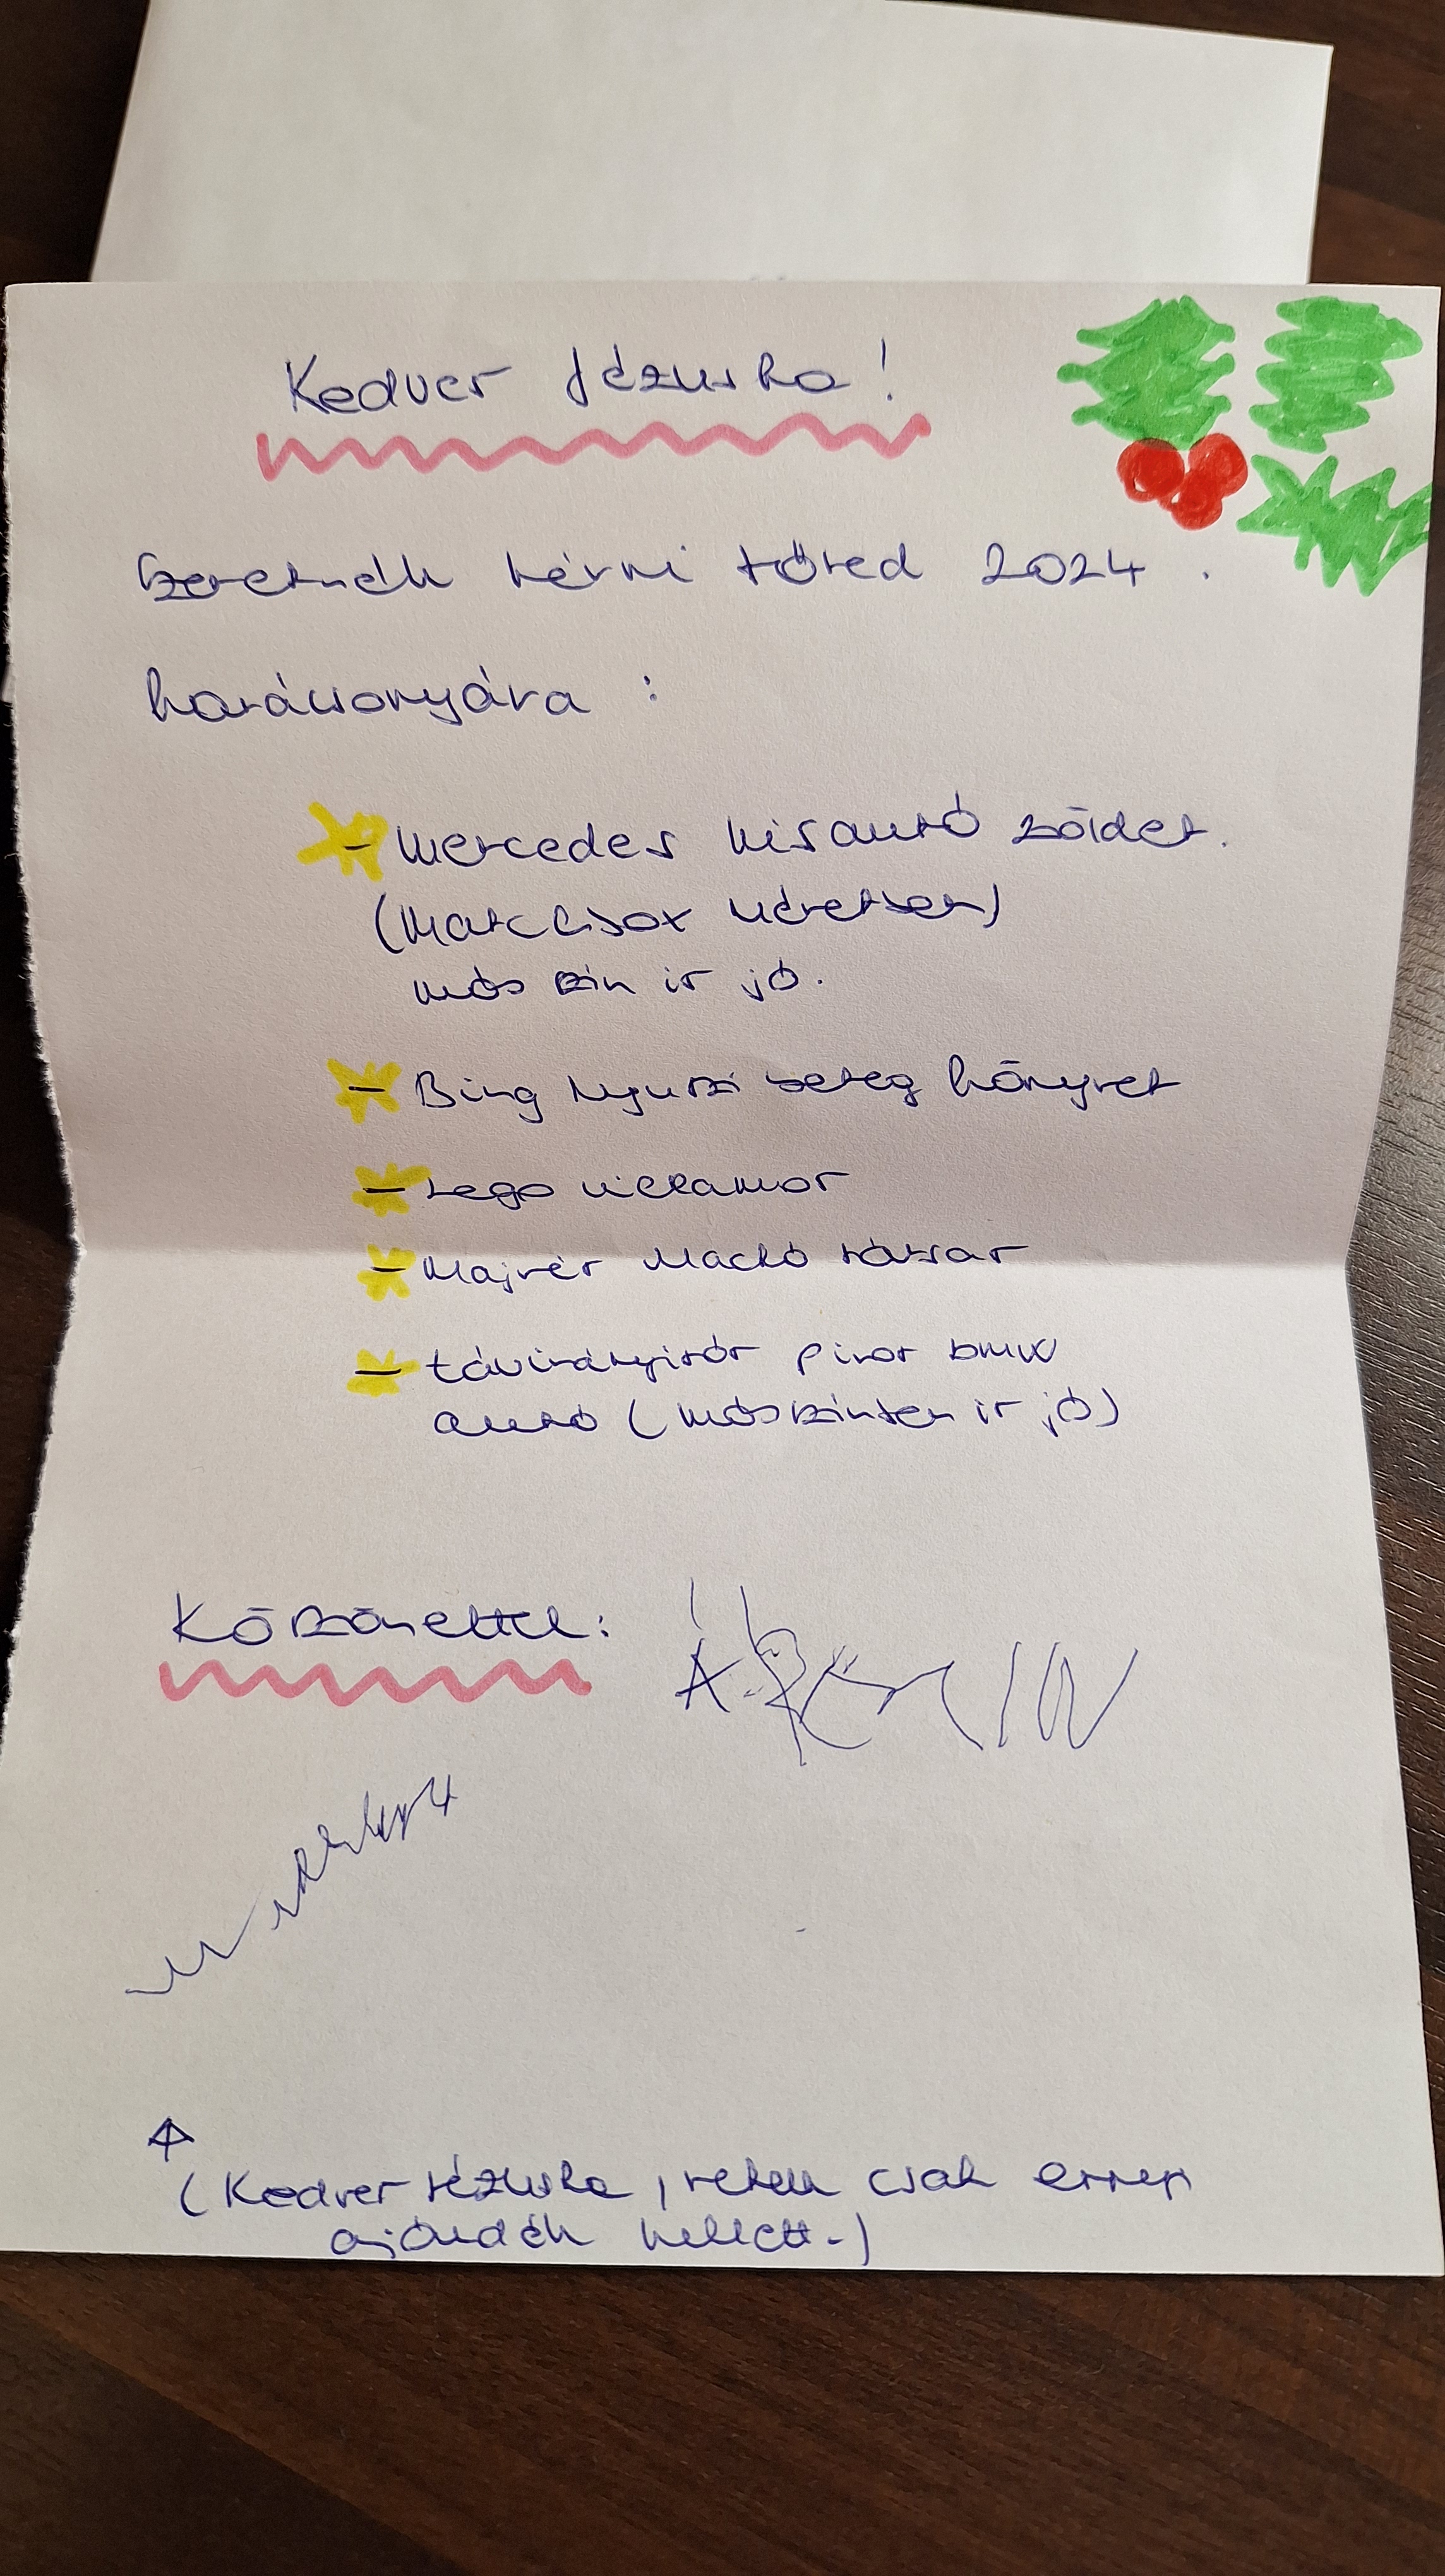 Kedves Jézuska!
Szeretnék kérni tőled 2024.
karácsonyára:
- Mercedes kisautó zöldet.
(Matchbox méretben)
más szín is jó.
- Bing Nyuszi beteg könyvet
- Lego
- Maci társas
- távirányitós piros bmw
autó (más színben is jó)
Köszönettel:
(Kedves Jézuska, nekem csak ennyi
ajándék kellett.)